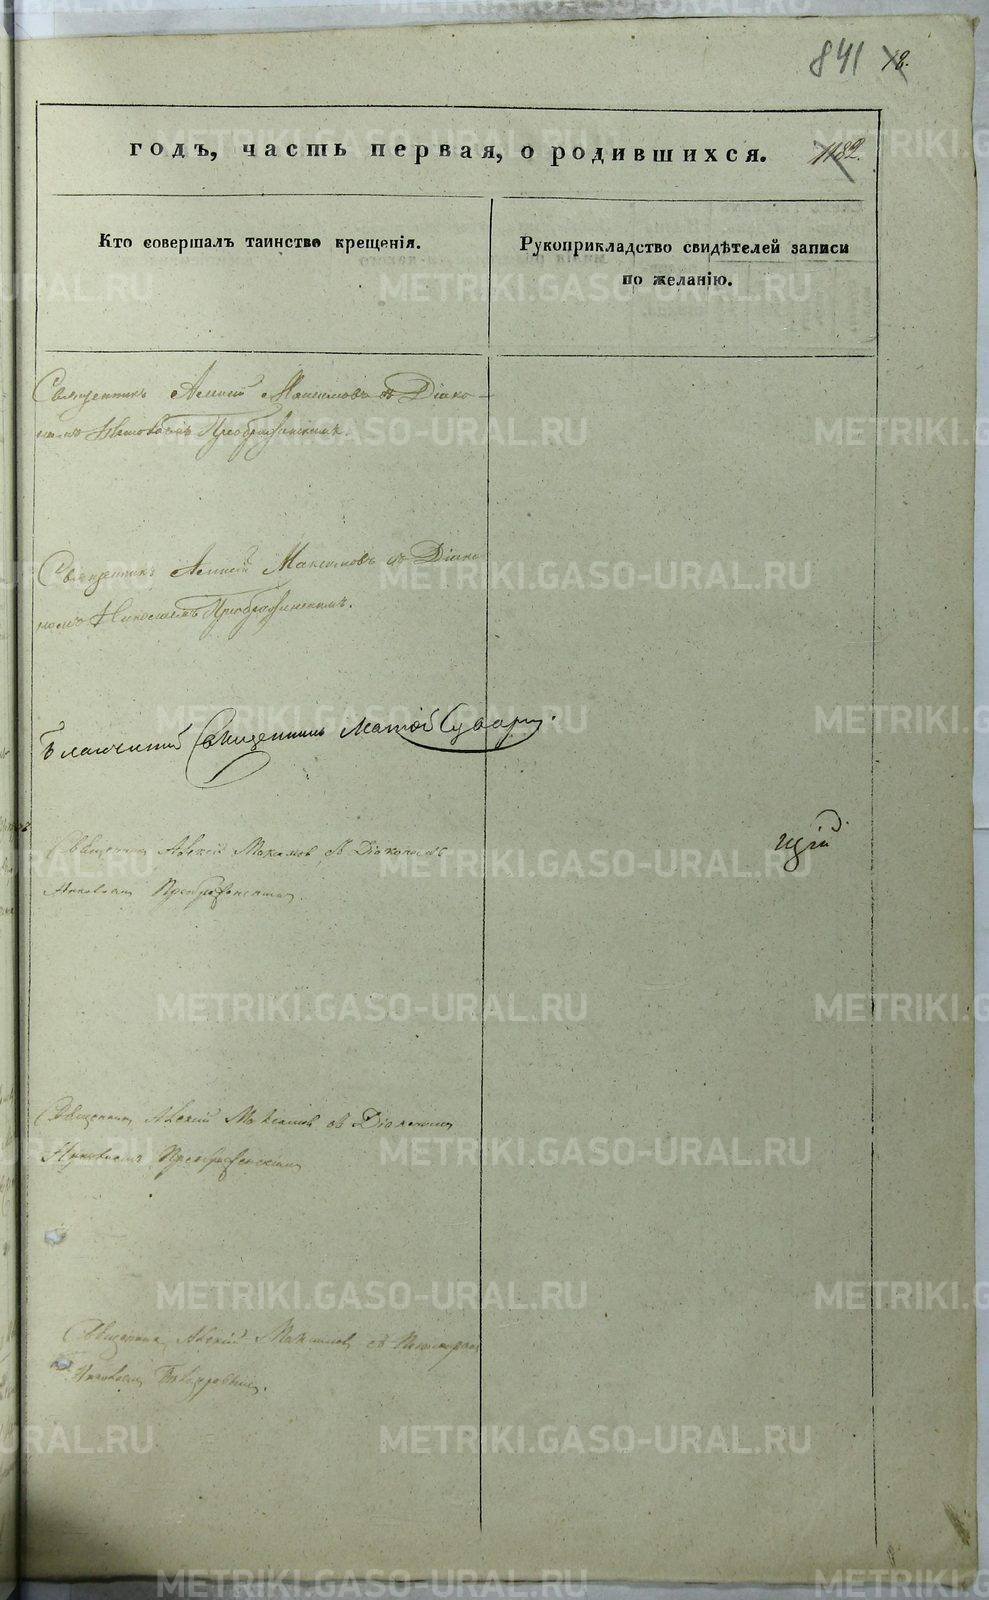 841 18.
годъ, часть первая, о родившихся. 1182.
Кто совершалъ таинство крещенія.
Рукоприкладство свидѣтелей записи
по желанію.
Священникъ Алексій Максимовъ съ Діако-
номъ Николаемъ Преображенскимъ.
Священникъ Алексій Максимовъ съ Діако
номъ Николаемъ Преображенскимъ.
Благочинный Священникъ Матѳей Сувари.
щій
Священникъ Алексій Максимовъ съ Діакономъ
Николаемъ Преображенскимъ.
Священникъ Алексій Максимовъ съ Діакономъ
Николаемъ Преображенскимъ
Священникъ Алексій Максимовъ съ
Николаемъ
METRIKI.GASO-URAL.RU